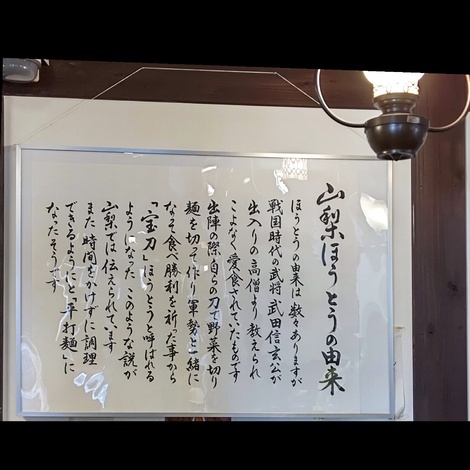 山梨ほうとうの由来
ほうとうの由来は数々ありますが
戦国時代の武将武田信玄公が
出入りの高僧より教えられ
こよなく愛食されていたものです
出陣の際自らの刀で野菜を切り
麺を切って作り軍勢と一緒に
なって食べ勝利を祈った事から
「宝刀」ほうとうと呼ばれる
ようになった このような説が
山梨では伝えられています
また時間をかけずに調理
できるようにと「平打麺」に
なったそうです